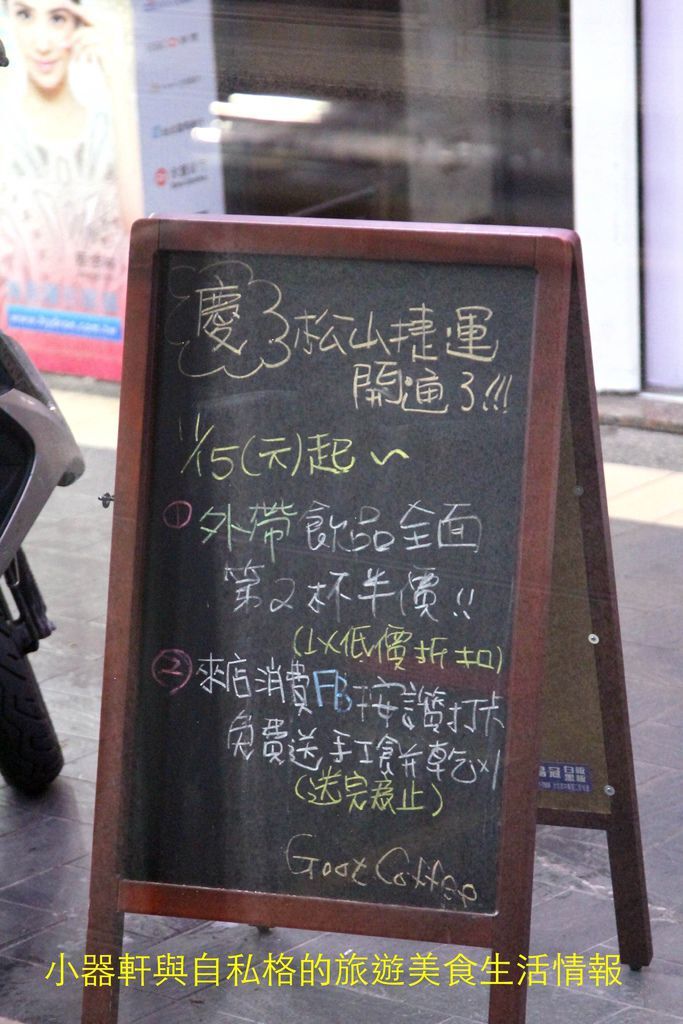 慶
松山捷運
開通了!!!
11/15(六)起~
① 外帶飲品全面
第2杯半價!!
(以低價折扣)
② 來店消費FB按讚打卡
免費送手工餅乾x1
(送完為止)
Goot Coffee
白板
黑板
小器軒與自私格的旅遊美食生活情報